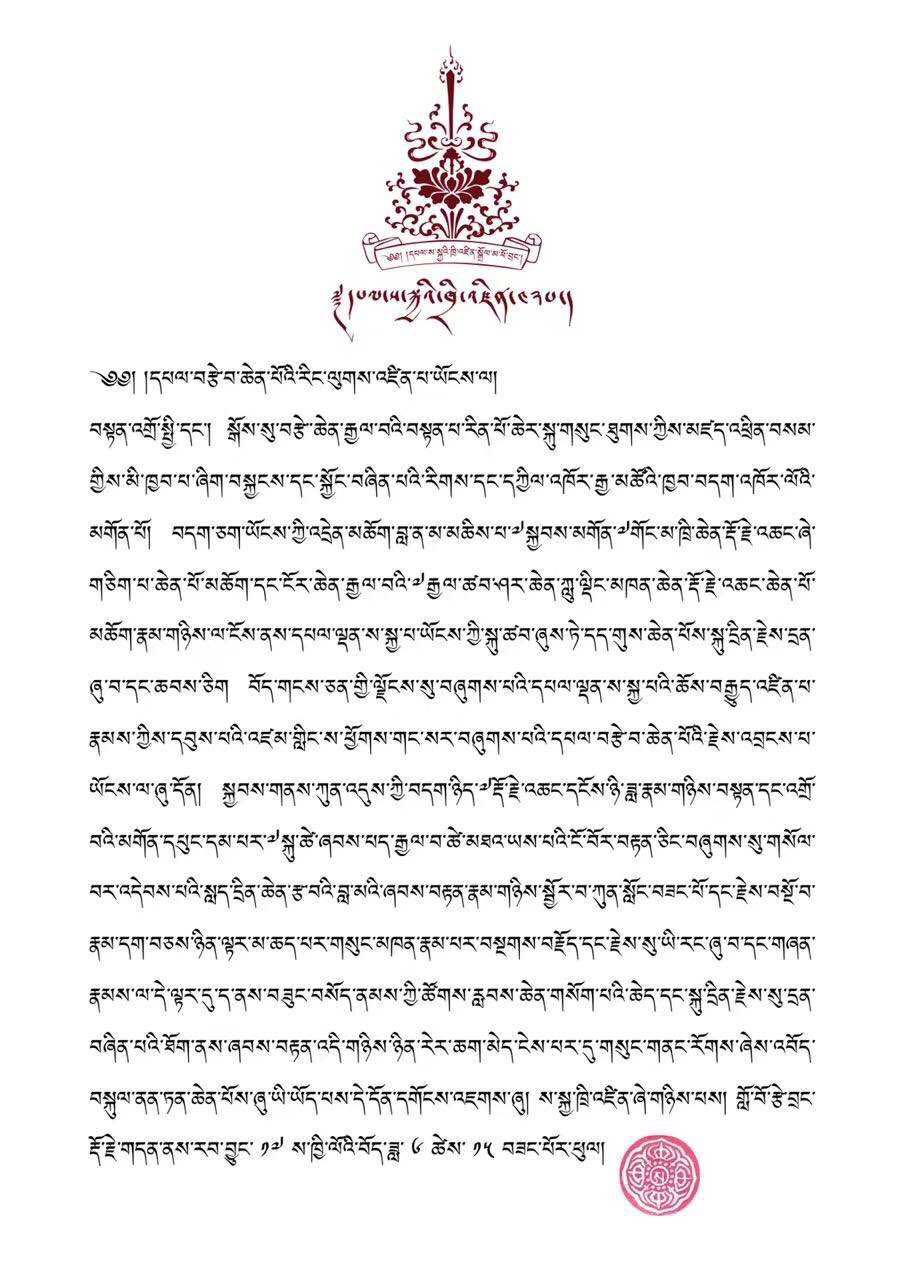 ༄༅། །དཔལ་ས་སྐྱའི་ཁྲི་འཛིན་སྒྲོལ་མ་ཕོ་བྲང་།
༄༅། །དཔལ་བརྩེ་བ་ཆེན་པོའི་རིང་ལུགས་འཛིན་པ་ཡོངས་ལ།
བསྟན་འགྲོ་སྤྱི་དང་། སྒོས་སུ་བརྩེ་ཆེན་རྒྱལ་བའི་བསྟན་པ་རིན་པོ་ཆེར་སྐུ་གསུང་ཐུགས་ཀྱིས་མཛད་འཕྲིན་བསམ་
གྱིས་མི་ཁྱབ་པ་ཞིག་བསྐྱངས་དང་སྐྱོང་བཞིན་པའི་རིགས་དང་དཀྱིལ་འཁོར་རྒྱ་མཚོའི་ཁྱབ་བདག་འཁོར་ལོའི་
མགོན་པོ། བདག་ཅག་ཡོངས་ཀྱི་འདྲེན་མཆོག་བླ་ན་མ་མཆིས་པ་༧སྐྱབས་མགོན་༧གོང་མ་ཁྲི་ཆེན་རྡོ་རྗེ་འཆང་ཞེ་
གཅིག་པ་ཆེན་པོ་མཆོག་དང་ངོར་ཆེན་རྒྱལ་བའི་༧རྒྱལ་ཚབ་ཤར་ཆེན་ཀླུ་ལྡིང་མཁན་ཆེན་རྡོ་རྗེ་འཆང་ཆེན་པོ་
མཆོག་རྣམ་གཉིས་ལ་ངོས་ནས་དཔལ་ལྡན་ས་སྐྱ་པ་ཡོངས་ཀྱི་སྐུ་ཚབ་ཞུས་ཏེ་དད་གུས་ཆེན་པོས་སྐུ་དྲིན་རྗེས་དྲན་
ཞུ་བ་དང་ཆབས་ཅིག བོད་གངས་ཅན་གྱི་ལྗོངས་སུ་བཞུགས་པའི་དཔལ་ལྡན་ས་སྐྱ་པའི་ཆོས་བརྒྱུད་འཛིན་པ་
རྣམས་ཀྱིས་དབུས་པའི་འཛམ་གླིང་ས་ཕྱོགས་གང་སར་བཞུགས་པའི་དཔལ་བརྩེ་བ་ཆེན་པོའི་རྗེས་འབྲངས་པ་
ཡོངས་ལ་ཞུ་དོན། སྐྱབས་གནས་ཀུན་འདུས་ཀྱི་བདག་ཉིད་༧རྡོ་རྗེ་འཆང་དངོས་ཉི་ཟླ་རྣམ་གཉིས་བསྟན་དང་འགྲོ་
བའི་མགོན་དཔུང་དམ་པར་༧སྐུ་ཚེ་ཞབས་པད་རྒྱལ་བ་ཚེ་མཐའ་ཡས་པའི་ངོ་བོར་བརྟན་ཅིང་བཞུགས་སུ་གསོལ་
བར་འདེབས་པའི་སླད་དྲིན་ཆེན་རྩ་བའི་བླ་མའི་ཞབས་བརྟན་རྣམ་གཉིས་སྦྱོར་བ་ཀུན་སློང་བཟང་པོ་དང་རྗེས་བསྔོ་བ་
རྣམ་དག་བཅས་ཉིན་ལྟར་མ་ཆད་པར་གསུང་མཁན་རྣམ་པར་བསྔགས་བརྗོད་དང་རྗེས་སུ་ཡི་རང་ཞུ་བ་དང་གཞན་
རྣམས་ལ་དེ་ལྟར་དུ་ད་ནས་བཟུང་བསོད་ནམས་ཀྱི་ཚོགས་རླབས་ཆེན་གསོག་པའི་ཆེད་དང་སྐུ་དྲིན་རྗེས་སུ་དྲན་
བཞིན་པའི་ཐོག་ནས་ཞབས་བརྟན་འདི་གཉིས་ཉིན་རེར་ཆག་མེད་ངེས་པར་དུ་གསུང་གནང་རོགས་ཞེས་འབོད་
བསྐུལ་ནན་ཏན་ཆེན་པོས་ཞུ་ཡི་ཡོད་པས་དེ་དོན་དགོངས་འཇགས་ཞུ། ས་སྐྱ་ཁྲི་འཛིན་ཞེ་གཉིས་པས། གློ་བོ་རྩེ་བྲང་
རྡོ་རྗེ་གདན་ནས་རབ་བྱུང་ ༡༧ ས་ཁྱི་ལོའི་བོད་ཟླ་ ༦ ཚེས་ ༡༥ བཟང་པོར་ཕུལ།